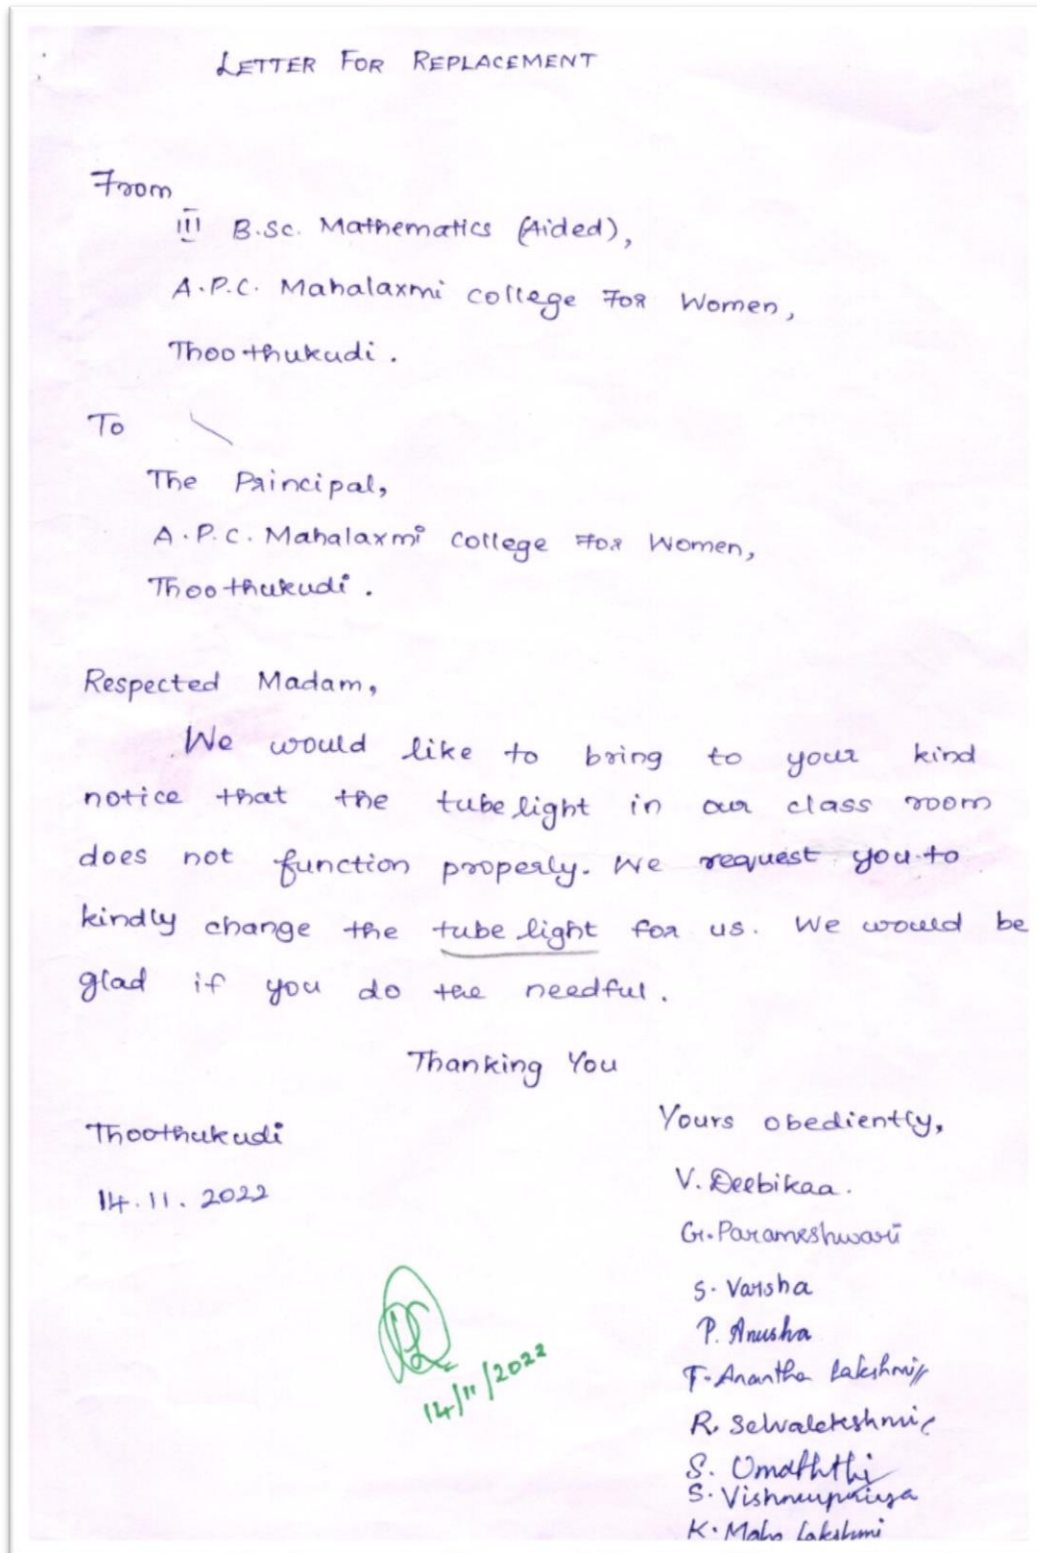 LETTER FOR REPLACEMENT
From
III B.Sc. Mathematics (Aided),
A.P.C. Mahalaxmi College For Women,
Thoothukudi.
To
The Principal,
A.P.C. Mahalaxmi College For Women,
Thoothukudi.
Respected Madam,
We would like to bring to your kind
notice that the tube light in our class room
does not function properly. We request you to
kindly change the tube light for us. We would be
glad if you do the needful.
Thanking You
Thoothukudi
14.11.2022
Yours obediently,
V. Deebikaa.
G. Parameshwari
S. Varsha
P. Anusha
Anantha Lakshmi
R. Selvalekshmi
S.
S. Vishnupriya
K. Maha Lakshmi
14/11/2022